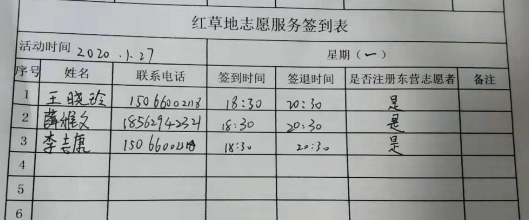 红草地志愿服务签到表
活动时间 2020.1.27 星期（一）
序号 姓名 联系电话 签到时间 签退时间 是否注册东营志愿者 备注
1 王晓玲 18:30 20:30 是
2 薛维文 18562942321 18:30 20:30 是
3 李志康 18:30 20:30 是
4
5
6